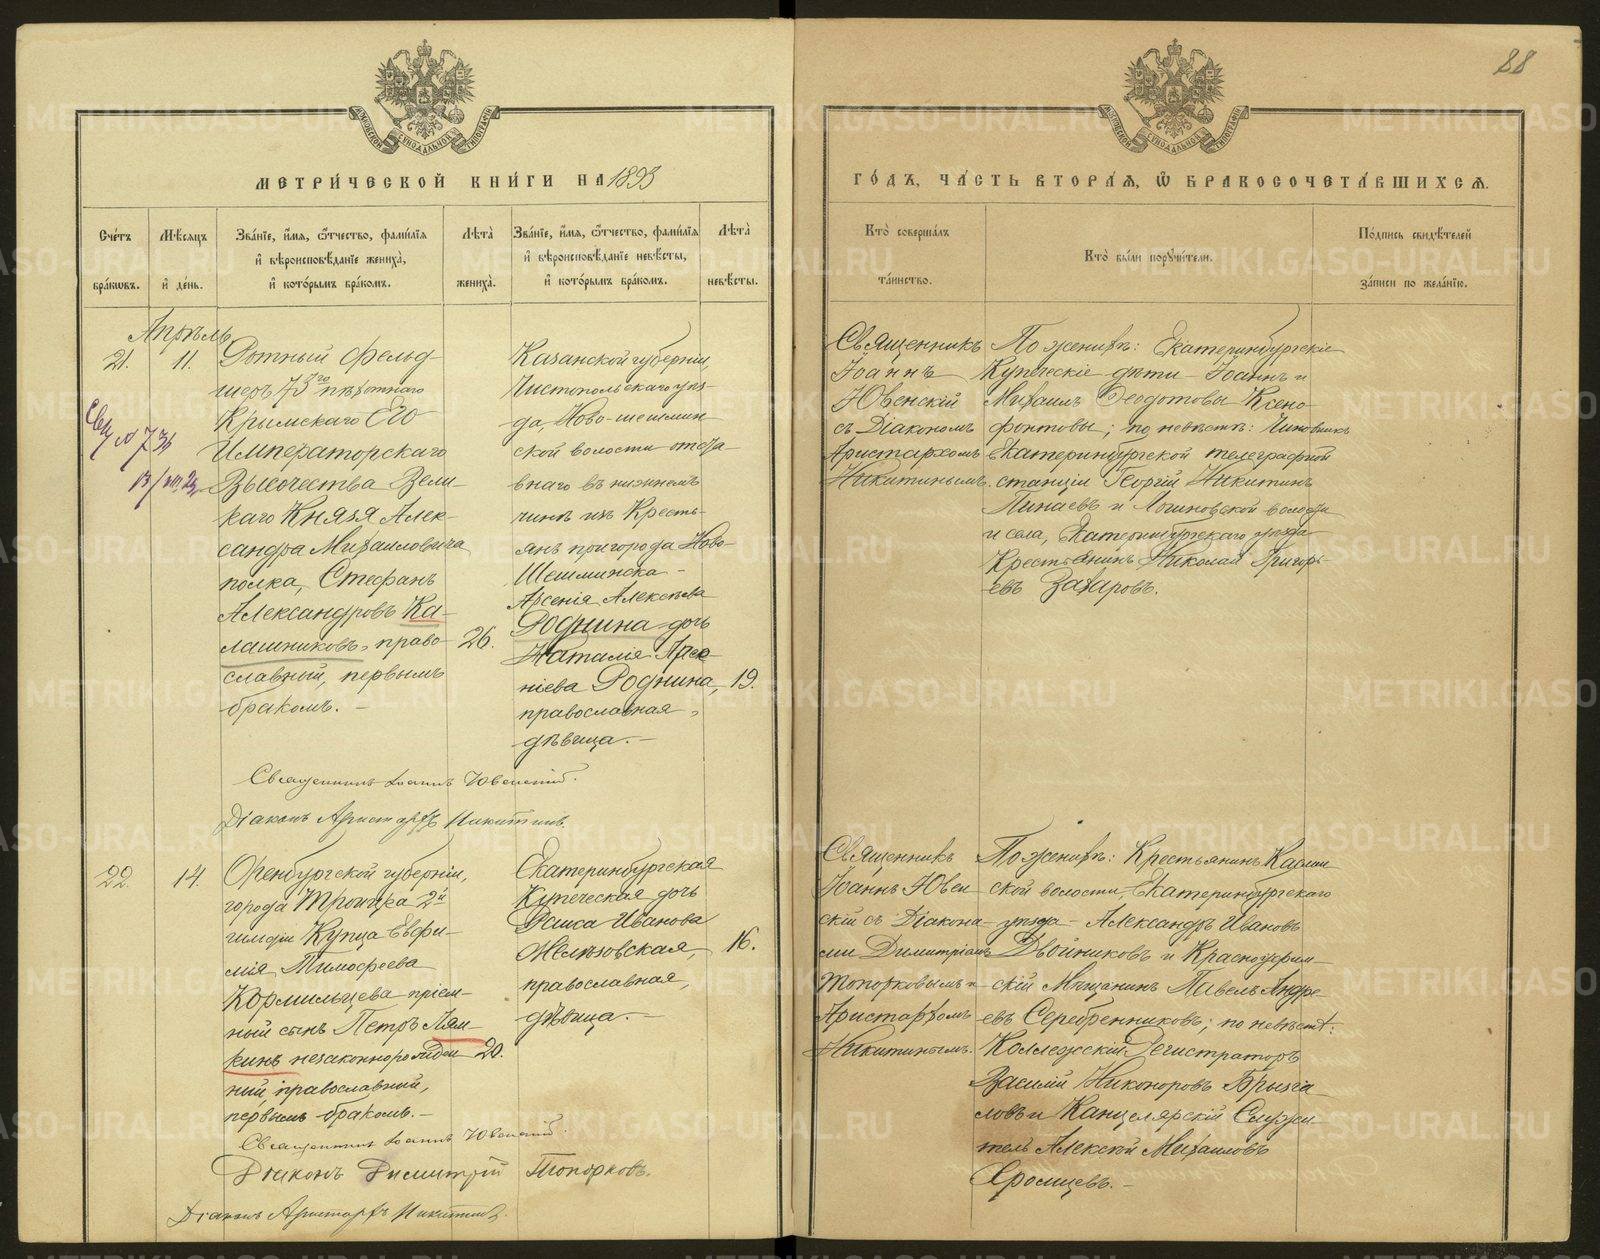 88
МОСКОВСКОЙ СѴНОДАЛЬНОЙ ТИПОГРАФІИ
МОСКОВСКОЙ СѴНОДАЛЬНОЙ ТИПОГРАФІИ
МЕТРИ́ЧЕСКОЙ КНИ́ГИ НА 1893
ГО́ДЪ, ЧА́СТЬ ВТОРА́Я, Ѽ БРАКОСОЧЕТА́ВШИХСЯ.
Сче́тъ бра́кѡвъ.
Мѣ́сяцъ и҆ де́нь.
Зва́нїе, и҆́мя, ѻ҆́тчество, фами́лїя
и҆ вѣроисповѣ́данїе жениха̀,
и҆ кото́рымъ бра́комъ.
Лѣ́та жениха̀.
Зва́нїе, и҆́мя, ѻ҆́тчество, фами́лїя
и҆ вѣроисповѣ́данїе невѣ́сты,
и҆ кото́рымъ бра́комъ.
Лѣ́та невѣ́сты.
Кто̀ соверша́лъ та́инство.
Кто̀ бы́ли порꙋчи́тели.
По́дпись свидѣ́телей за́писи по жела́нїю.
Апрѣль
21. 11.
Ротный фельд-
шеръ 73го пѣхотнаго
Крымскаго Его
Императорскаго
Высочества Вели-
каго Князя Алек-
сандра Михаиловича
полка, Стефанъ
Александровъ Ка-
лашниковъ, право-
славный, первымъ
бракомъ. –
26.
Казанской губерніи,
Чистопольскаго уѣз-
да, Ново-шешмин-
ской волости отста-
внаго въ нижнемъ
чинѣ изъ Кресть-
янъ пригорода Ново-
Шешминска –
Арсенія Алексѣева
Роднина дочь
Наталія Арсе-
ніева Роднина,
православная,
дѣвица. –
19.
Священникъ
Іоаннъ
Ювенскій
съ Діакономъ
Аристархомъ
Никитинымъ.
По женихѣ: Екатеринбургскіе
Купеческіе дѣти Іоаннъ и
Михаилъ Ѳеодотовы Ксено-
фонтовы; по невѣстѣ: Чиновникъ
Екатеринбургской телеграфной
станціи Георгій Никитинъ
Пинаевъ и Логиновской волости
и села, Екатеринбургскаго уѣзда
Крестьянинъ Николай Григорь-
евъ Захаровъ.
Священникъ Іоаннъ Ювенскій.
Діаконъ Аристархъ Никитинъ.
22. 14.
Оренбургской губерніи,
города Троицка 2й
гильдіи Купца Евфи-
мія Тимофеева
Кормильцева пріем-
ный сынъ Петръ Лям-
кинъ незаконнорожден-
ный, православный,
первымъ бракомъ. –
20.
Екатеринбургская
Купеческая дочь
Раиса Иванова
Желѣзовская,
православная,
дѣвица. –
16.
Священникъ
Іоаннъ Ювен-
скій съ Діакона-
ми Димитріемъ
Топорковымъ и
Аристархомъ
Никитинымъ.
По женихѣ: Крестьянинъ Касли-
ской волости, Екатеринбургскаго
уѣзда – Александръ Ивановъ
Двойниковъ и Красноуфим-
скій Мѣщанинъ Павелъ Андре-
евъ Серебренниковъ; по невѣстѣ:
Коллежскій Регистраторъ
Василій Никоноровъ Брызга-
ловъ и Канцелярскій Служи-
тель Алексѣй Михаиловъ
Священникъ Іоаннъ Ювенскій.
Діаконъ Димитрій Топорковъ.
Діаконъ Аристархъ Никитинъ.
METRIKI.GASO-URAL.RU